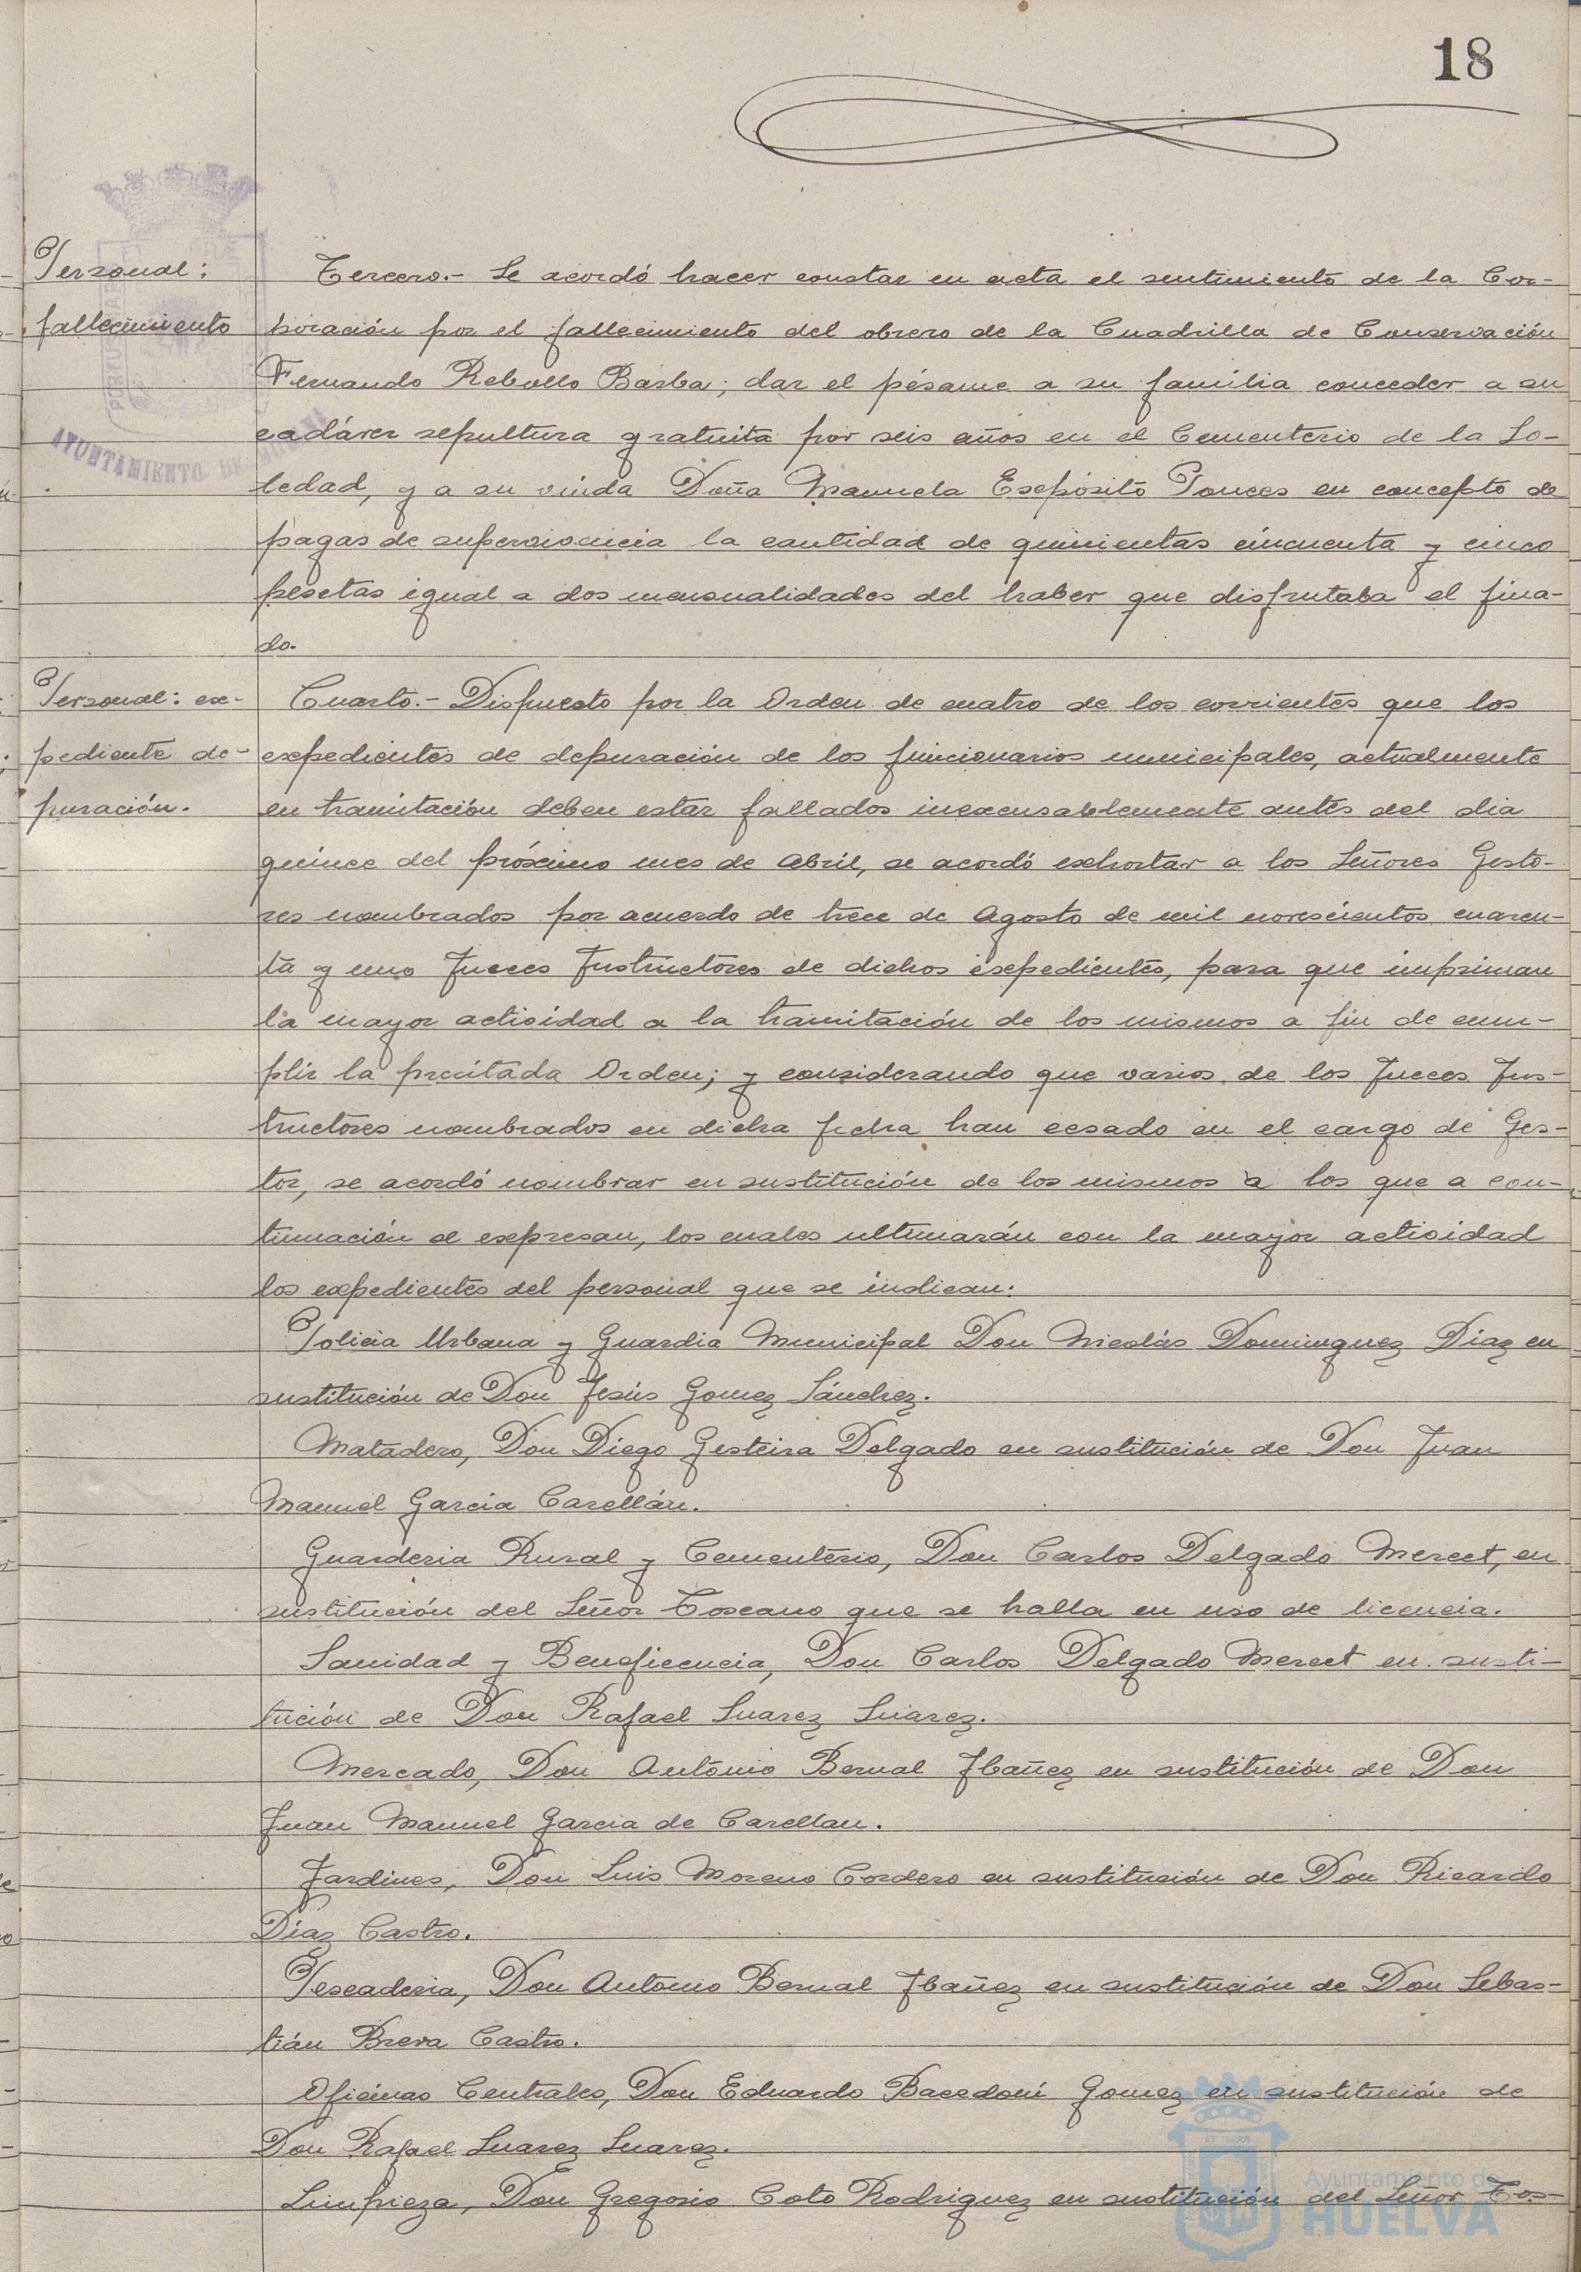 18
Personal:
fallecimiento
Tercero.- Se acordó hacer constar en acta el sentimiento de la Cor-
poración por el fallecimiento del obrero de la Cuadrilla de Conservación
Fernando Rebollo Barba; dar el pésame a su familia conceder a su
cadáver sepultura gratuita por seis años en el Cementerio de la So-
ledad, y a su viuda Doña Manuela Expósito Ponces en concepto de
pagas de supervivencia la cantidad de quinientas cincuenta y cinco
pesetas igual a dos mensualidades del haber que disfrutaba el fina-
do.
Personal: ex-
pediente de-
puración.
Cuarto.- Dispuesto por la Orden de cuatro de los corrientes que los
expedientes de depuración de los funcionarios municipales, actualmente
en tramitación deben estar fallados inexcusablemente antes del dia
quince del próximo mes de Abril, se acordó exhortar a los Señores Gesto-
res nombrados por acuerdo de trece de Agosto de mil novecientos cuaren-
ta y uno Jueces Instructores de dichos expedientes, para que impriman
la mayor actividad a la tramitación de los mismos a fin de cum-
plir la precitada Orden; y considerando que varios de los Jueces Ins-
tructores nombrados en dicha fecha han cesado en el cargo de Ges-
tor, se acordó nombrar en sustitución de los mismos a los que a con-
tinuación se expresan, los cuales ultimarán con la mayor actividad
los expedientes del personal que se indican:
Policia Urbana y Guardia Municipal Don Nicolás Dominguez Diaz en
sustitución de Don Jesús Gomez Sánchez.
Matadero, Don Diego Gesteira Delgado en sustitución de Don Juan
Manuel Garcia Carellán.
Guarderia Rural y Cementerio, Don Carlos Delgado Merect, en
sustitución del Señor Toscano que se halla en uso de licencia.
Sanidad y Beneficencia, Don Carlos Delgado Merect en susti-
tución de Don Rafael Suarez Suarez.
Mercado, Don Antonio Bernal Ibañez en sustitución de Don
Juan Manuel Garcia de Carellan.
Jardines, Don Luis Moreno Cordero en sustitución de Don Ricardo
Diaz Castro.
Pescaderia, Don Antonio Bernal Ibañez en sustitución de Don Sebas-
tián Breva Castro.
Oficinas Centrales, Don Eduardo Bacedoni Gomez en sustitución de
Don Rafael Suarez Suarez.
Limpieza, Don Gregorio Coto Rodriguez en sustitución del Señor Tos-
AYUNTAMIENTO DE HUELVA
Ayuntamiento de
HUELVA